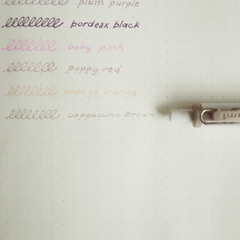 plum purple
bordeax black
baby pink
poppy red
mango orange
cappuccino brown